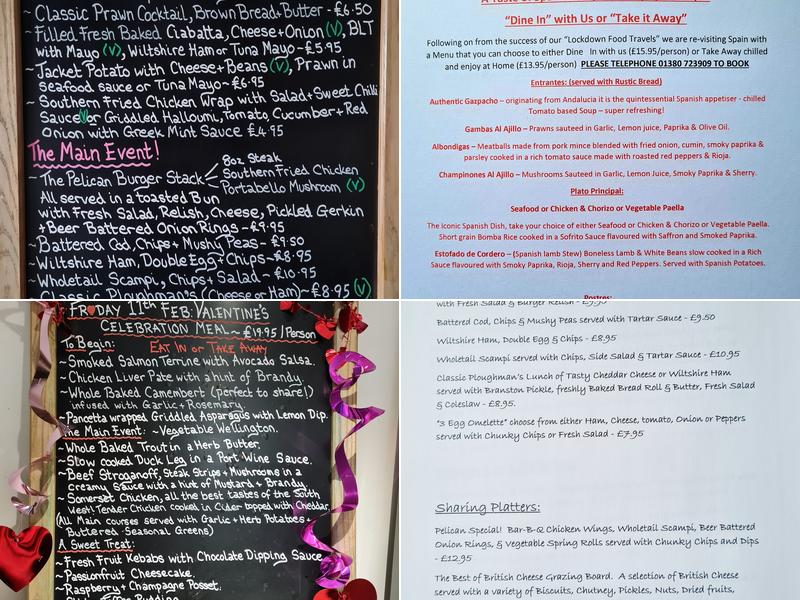 ~ Classic Prawn Cocktail, Brown Bread + Butter - £6.50
~ Filled Fresh Baked Ciabatta, Cheese + Onion (V), BLT
with Mayo (V), Wiltshire Ham or Tuna Mayo - £5.95
~ Jacket Potato with Cheese + Beans (V), Prawn in
seafood sauce or Tuna Mayo - £6.95
~ Southern Fried Chicken Wrap with Salad + Sweet Chilli
Sauce or Griddled Halloumi, Tomato, Cucumber + Red
Onion with Greek Mint Sauce £4.95
The Main Event!
~ The Pelican Burger Stack
8oz Steak
Southern Fried Chicken
Portabello Mushroom (V)
All served in a toasted Bun
with Fresh Salad, Relish, Cheese, Pickled Gerkin
+ Beer Battered Onion Rings - £9.95
~ Battered Cod, Chips + Mushy Peas - £9.50
~ Wiltshire Ham, Double Egg + Chips - £8.95
~ Wholetail Scampi, Chips + Salad - £10.95
~ Classic Ploughman's (Cheese or Ham) - £8.95 (V)
"Dine In" with Us or "Take it Away"
Following on from the success of our "Lockdown Food Travels" we are re-visiting Spain with
a Menu that you can choose to either Dine In with us (£15.95/person) or Take Away chilled
and enjoy at Home (£13.95/person) PLEASE TELEPHONE 01380 723909 TO BOOK
Entrantes: (served with Rustic Bread)
Authentic Gazpacho – originating from Andalucia it is the quintessential Spanish appetiser - chilled
Tomato based Soup – super refreshing!
Gambas Al Ajillo – Prawns sauteed in Garlic, Lemon juice, Paprika & Olive Oil.
Albondigas – Meatballs made from pork mince blended with fried onion, cumin, smoky paprika &
parsley cooked in a rich tomato sauce made with roasted red peppers & Rioja.
Champinones Al Ajillo – Mushrooms Sauteed in Garlic, Lemon Juice, Smoky Paprika & Sherry.
Plato Principal:
Seafood or Chicken & Chorizo or Vegetable Paella
The Iconic Spanish Dish, take your choice of either Seafood or Chicken & Chorizo or Vegetable Paella.
Short grain Bomba Rice cooked in a Sofrito Sauce flavoured with Saffron and Smoked Paprika.
Estofado de Cordero – (Spanish lamb Stew) Boneless Lamb & White Beans slow cooked in a Rich
Sauce flavoured with Smoky Paprika, Rioja, Sherry and Red Peppers. Served with Spanish Potatoes.
Postres:
Friday 11th Feb: Valentine's
Celebration Meal - £19.95/Person
To Begin: Eat In or Take Away
~ Smoked Salmon Terrine with Avocado Salsa.
~ Chicken Liver Pate with a hint of Brandy.
~ Whole Baked Camembert (perfect to share!)
infused with Garlic + Rosemary.
~ Pancetta wrapped Griddled Asparagus with Lemon Dip.
The Main Event: ~ Vegetable Wellington.
~ Whole Baked Trout in a Herb Butter.
~ Slow cooked Duck Leg in a Port Wine Sauce.
~ Beef Stroganoff, Steak Strips + Mushrooms in a
creamy Sauce with a hint of Mustard + Brandy.
~ Somerset Chicken, all the best tastes of the South
West! Tender Chicken cooked in Cider topped with Cheddar.
(All Main courses served with Garlic + Herb Potatoes +
Buttered Seasonal Greens)
A Sweet Treat:
~ Fresh Fruit Kebabs with Chocolate Dipping Sauce
~ Passionfruit Cheesecake.
~ Raspberry + Champagne Posset.
with Fresh Salad & Burger Relish - £9.50
Battered Cod, Chips & Mushy Peas served with Tartar Sauce - £9.50
Wiltshire Ham, Double Egg & Chips - £8.95
Wholetail Scampi served with Chips, Side Salad & Tartar Sauce - £10.95
Classic Ploughman's Lunch of Tasty Cheddar Cheese or Wiltshire Ham
served with Branston Pickle, freshly Baked Bread Roll & Butter, Fresh Salad
& Coleslaw - £8.95.
"3 Egg Omelette" choose from either Ham, Cheese, tomato, Onion or Peppers
served with Chunky Chips or Fresh Salad - £7.95
Sharing Platters:
Pelican Special! Bar-B-Q Chicken Wings, Wholetail Scampi, Beer Battered
Onion Rings, & Vegetable Spring Rolls served with Chunky Chips and Dips
- £12.95
The Best of British Cheese Grazing Board. A selection of British Cheese
served with a variety of Biscuits, Chutney, Pickles, Nuts, Dried fruits,